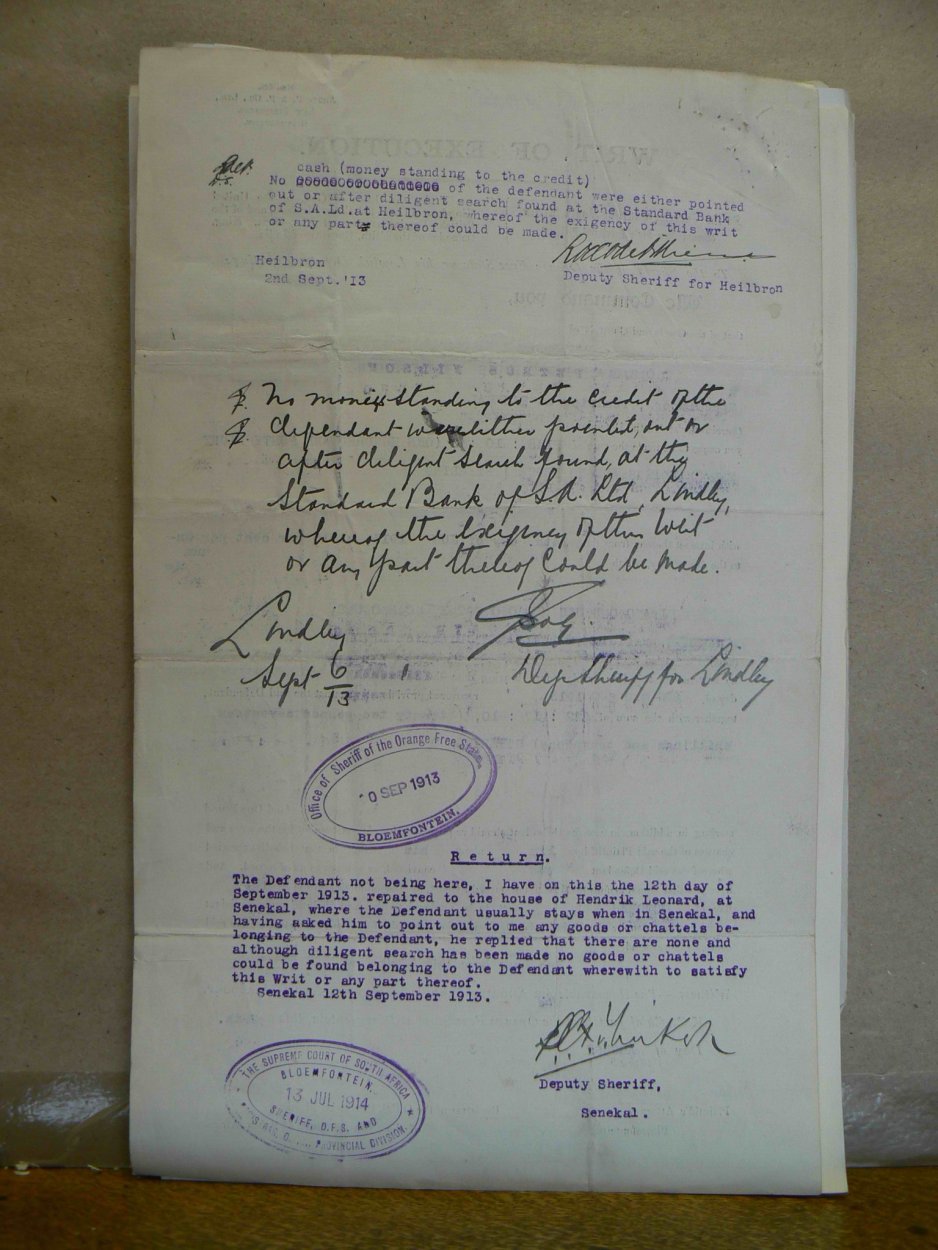 cash (money standing to the credit)
No of the defendant were either pointed
out or after diligent search found at the Standard Bank
of S.A.Ld.at Heilbron, whereof the exigency of this writ
or any part thereof could be made.
Heilbron
2nd Sept.'13
Deputy Sheriff for Heilbron
No monies standing to the credit of the
defendant were either pointed out or
after diligent search found, at the
Standard Bank of S.A. Ltd, Lindley,
whereof the Exigency of this Writ
or any part thereof could be made.
Lindley
Sept 6/13
Dep Sheriff for Lindley
Office of Sheriff of the Orange Free State
0 SEP 1913
BLOEMFONTEIN.
Return.
The Defendant not being here, I have on this the 12th day of
September 1913. repaired to the house of Hendrik Leonard, at
Senekal, where the Defendant usually stays when in Senekal, and
having asked him to point out to me any goods or chattels be-
longing to the Defendant, he replied that there are none and
although diligent search has been made no goods or chattels
could be found belonging to the Defendant wherewith to satisfy
this Writ or any part thereof.
Senekal 12th September 1913.
Deputy Sheriff,
Senekal.
THE SUPREME COURT OF SOUTH AFRICA
BLOEMFONTEIN.
13 JUL 1914
SHERIFF, O.F.S. AND
PROVINCIAL DIVISION.